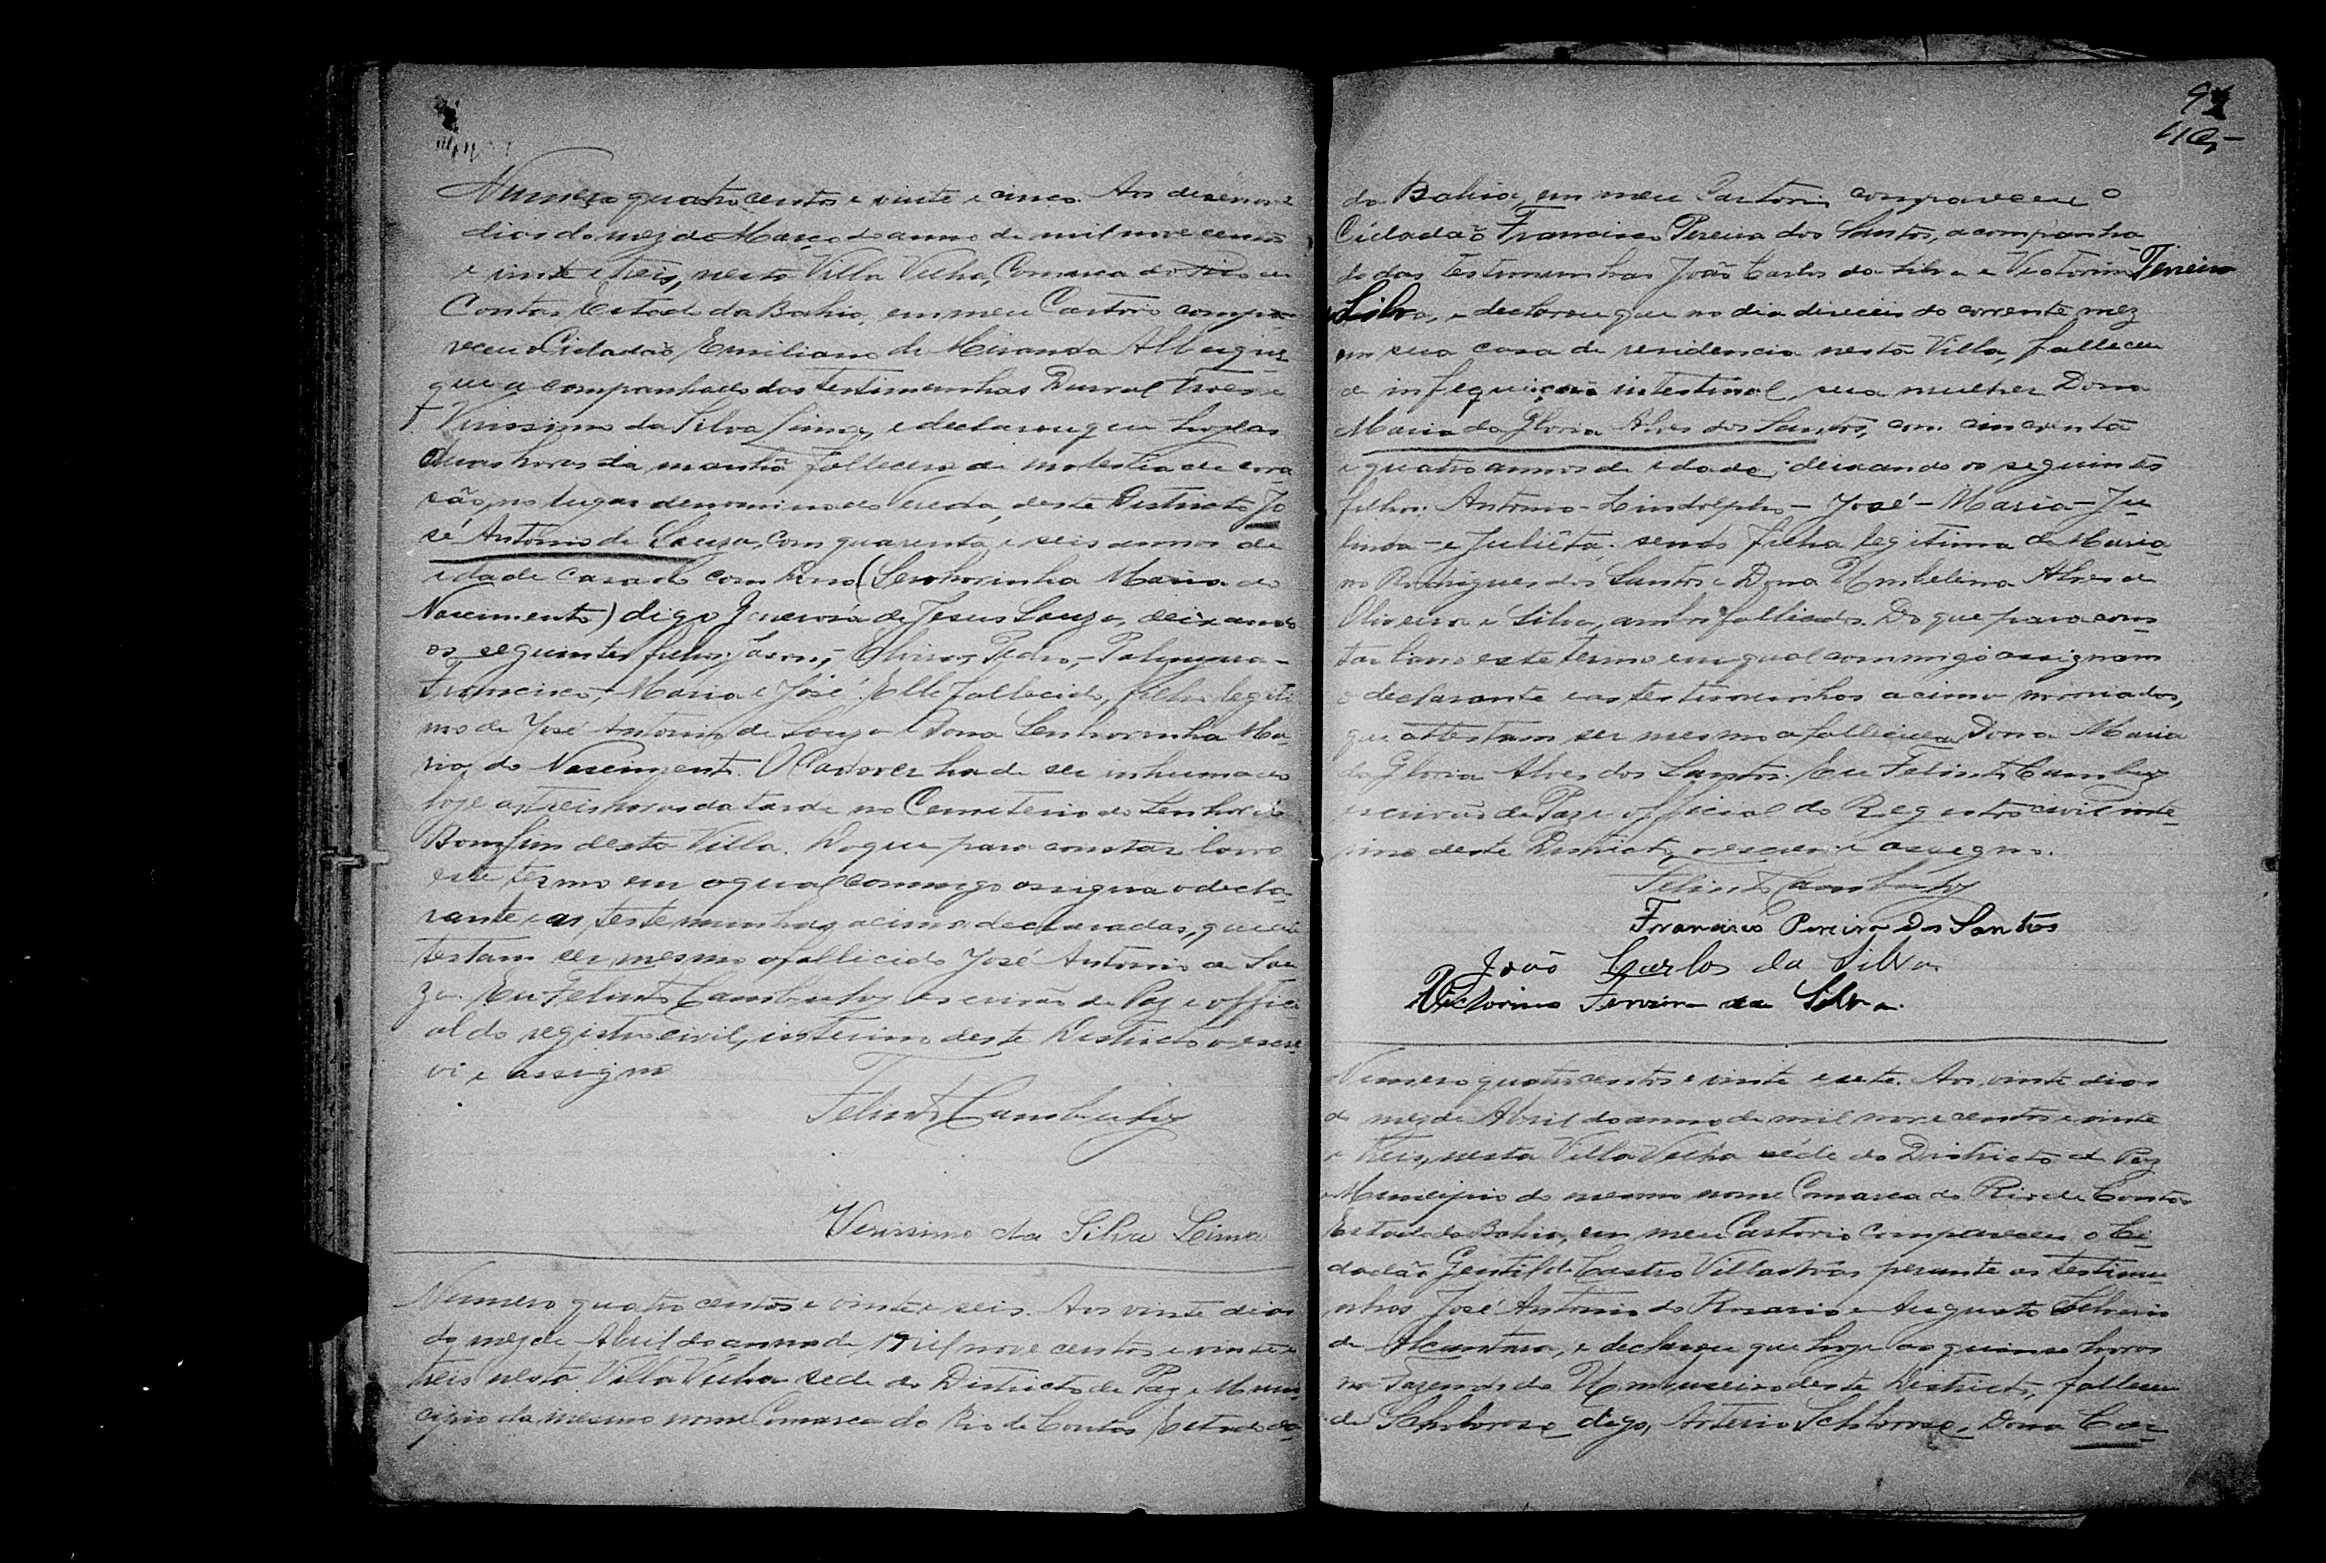 Numero quatro centos e vinte e cinco. Aos desenove
dias do mez de Março do anno de mil nove centos
e vinte e treis, nesta Villa Velha, Comarca do Rio de
Contas Estado da Bahia, em meu Cartorio compa-
receu o Cidadão Emiliano de Miranda Albuquer-
que acompanhado das testimunhas Durval
Virissimo da Silva Lima, e declarou que hoje as
duas horas da manhã fallecera de molestia de cora
são, no lugar denominado Vereda, deste Districto Jo
sé Antonio de Souza, com quarenta e seis annos de
idade casado com Dona (Senhorinha Maria do
Nascimento) digo Generosa de Jesus Souza, deixando
os seguintes filhos: Jason, - Pedro, -
Francisco, - Maria e José. Elle fallecido, filho legiti
mo de José Antonio de Souza e Dona Senhorinha Ma-
ria do Nascimento. O Cadaver ha de ser inhumado
hoje as treis horas da tarde no Cemeterio do Senhor do
Bomfim desta Villa. Do que para constar lavro
este termo em o qual commigo assigna o decla-
rante e as testemunhas acima declaradas, que at
testam ser mesmo o fallicido José Antonio de Sou
za. Eu Felinto Cambuhy escrivão de Paz e offici
al do registro civil, interino deste Districto o escre-
vi e assigno
Felinto Cambuhy
Verissimo da Silva Lima
Numero quatro centos e vinte e seis. Aos vinte dias
do mez de Abril do anno de mil nove centos e vinte e
treis nesta Villa Velha sede do Districto de Paz e Muni-
cipio do mesmo nome Comarca do Rio de Contas Estado da
da Bahia, em meu Cartorio compareceu o
Cidadão Francisco Pereira dos Santos, acompanha
do das testimunhas João Carlos da Silva e Victorino Ferreira
Silva, e declarou que no dia diseceis do corrente mez
em sua casa de residencia nesta Villa, falleceu
de intestinal, sua mulher Dona
Maria da Gloria Alves dos Santos, com cincoenta
e quatro annos de edade; deixando os seguintes
filhos: Antonio - Lindolpho - José - Maria - Ju
linda - e Juliêta. sendo filha legitima de Maria
no Rodrigues dos Santos e Dona Umbelina Alves de
Oliveira e Silva, ambos fallicidos. Do que para cons
tar lavro este termo em qual commigo assignam
o declarante e as testimunhas acima
que attestam ser mesmo a fallicida Dona Maria
da Gloria Alves dos Santos. Eu Felinto Cambuhy
escrivão de Paz e official do Registro civil inte-
rino deste Districto, o escrevi e assigno.
Felinto Cambuhy
Francisco Pereira dos Santos
João Carlos da Silva
Victorino Ferreira da Silva.
Numero quatro centos e vinte e sete. Aos vinte dias
do mez de Abril do anno de mil nove centos e vinte
e treis, nesta Villa Velha séde do Districto de Paz
e Municipio do mesmo nome Comarca do Rio de Contas
Estado da Bahia, em meu Cartorio compareceu o Ci-
dadão Gentil de Castro Villasbôas perante as testimu-
nhas José Antonio do Rosario e Augusto
de Alcantara, e declarou que hoje as quinse horas
na Fazenda do Umbuseiro deste Districto, falleceu
de digo, Arterio Schlorose, Dona Car-